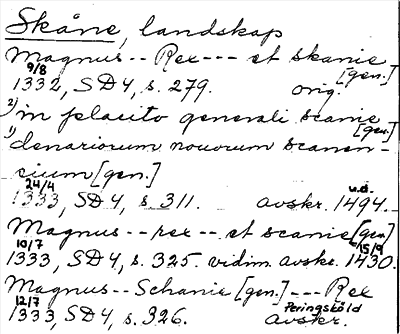 Skåne, landskap
Magnus -- Rex --- et skanie [gen.]
9/8
1332, SD4, s. 279. orig.
2) in placito generali scanie [gen.]
1) denariorum novorum scanen-
sium [gen.]
24/4 u.d.
1333, SD4, s. 311. avskr. 1494.
Magnus -- rex -- et scanie [gen]
10/7 15/9
1333, SD4, s. 325. vidim. avskr. 1430.
Magnus -- Schanie [gen.] --- Rex
12/7 Peringsköld
1333, SD4, s. 326. avskr.